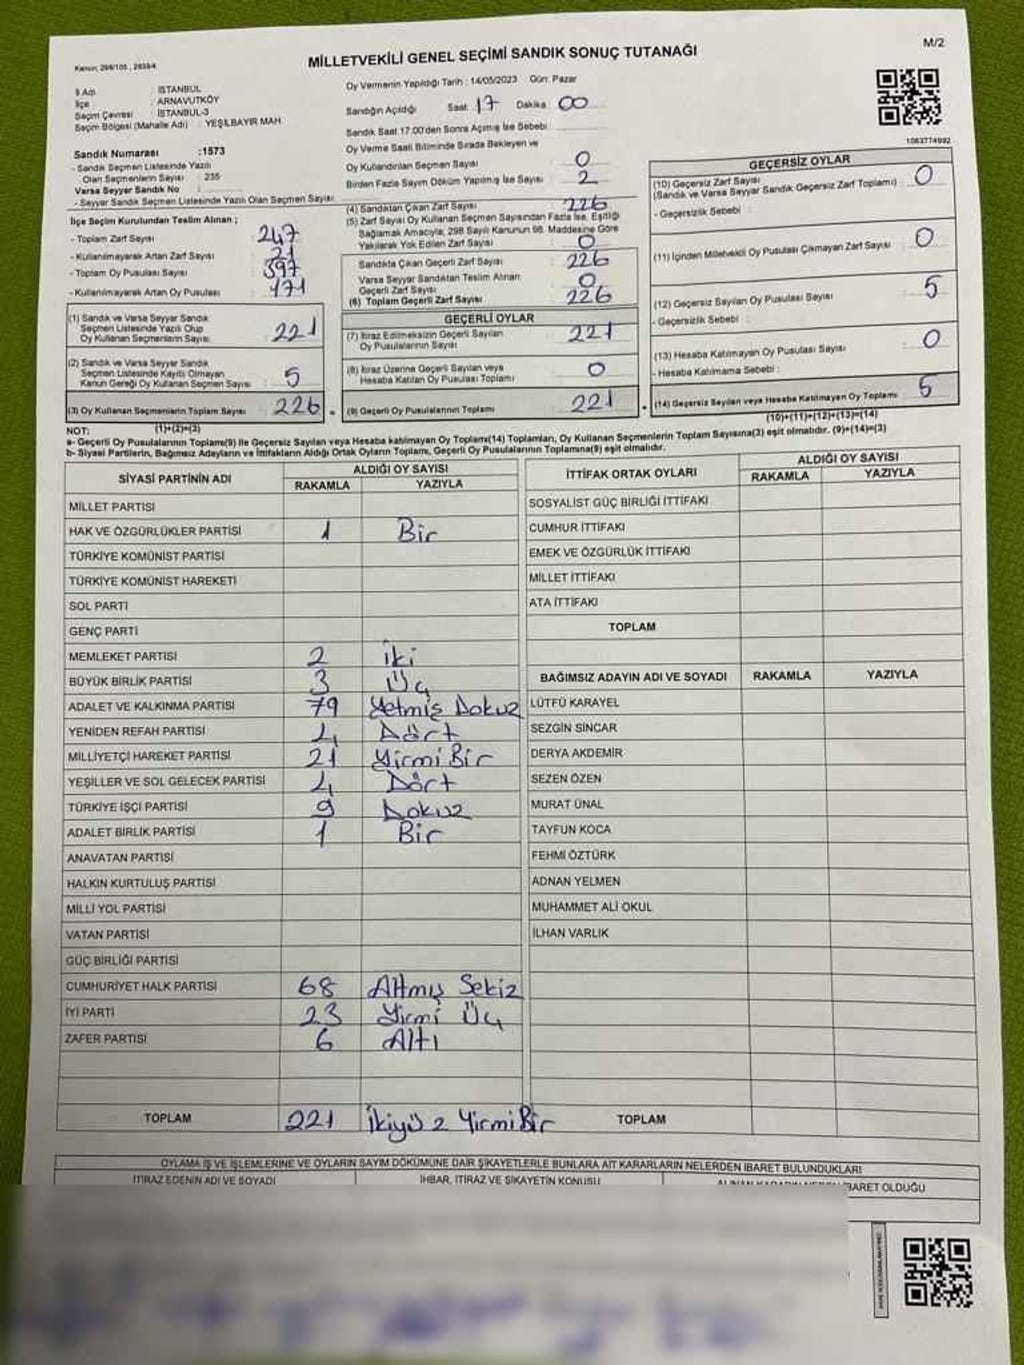 M/2
MİLLETVEKİLİ GENEL SEÇİMİ SANDIK SONUÇ TUTANAĞI
Kanun: 298/105, 2839/4
İl Adı : İSTANBUL
İlçe : ARNAVUTKÖY
Seçim Çevresi : İSTANBUL-3
Seçim Bölgesi (Mahalle Adı) : YEŞİLBAYIR MAH.
Sandık Numarası :1573
- Sandık Seçmen Listesinde Yazılı
Olan Seçmenlerin Sayısı : 235
Varsa Seyyar Sandık No :
- Seyyar Sandık Seçmen Listesinde Yazılı Olan Seçmen Sayısı
İlçe Seçim Kurulundan Teslim Alınan ;
- Toplam Zarf Sayısı 247
- Kullanılmayarak Artan Zarf Sayısı 21
- Toplam Oy Pusulası Sayısı 397
- Kullanılmayarak Artan Oy Pusulası : 171
(1) Sandık ve Varsa Seyyar Sandık
Seçmen Listesinde Yazılı Olup
Oy Kullanan Seçmenlerin Sayısı : 221
(2) Sandık ve Varsa Seyyar Sandık
Seçmen Listesinde Kayıtlı Olmayan
Kanun Gereği Oy Kullanan Seçmen Sayısı : 5
(3) Oy Kullanan Seçmenlerin Toplam Sayısı : 226
(1)+(2)=(3)
Oy Vermenin Yapıldığı Tarih : 14/05/2023 Gün: Pazar
Sandığın Açıldığı Saat: 17 Dakika: 00
Sandık Saat 17:00'den Sonra Açılmış İse Sebebi
Oy Verme Saati Bitiminde Sırada Bekleyen ve
Oy Kullandırılan Seçmen Sayısı : 0
Birden Fazla Sayım Döküm Yapılmış İse Sayısı : 2
(4) Sandıktan Çıkan Zarf Sayısı 226
(5) Zarf Sayısı Oy Kullanan Seçmen Sayısından Fazla İse, Eşitliği
Sağlamak Amacıyla, 298 Sayılı Kanunun 98. Maddesine Göre
Yakılarak Yok Edilen Zarf Sayısı : 0
Sandıkta Çıkan Geçerli Zarf Sayısı : 226
Varsa Seyyar Sandıktan Teslim Alınan
Geçerli Zarf Sayısı : 0
(6) Toplam Geçerli Zarf Sayısı : 226
GEÇERLİ OYLAR
(7) İtiraz Edilmeksizin Geçerli Sayılan
Oy Pusulalarının Sayısı : 221
(8) İtiraz Üzerine Geçerli Sayılan veya
Hesaba Katılan Oy Pusulası Toplamı : 0
(9) Geçerli Oy Pusulalarının Toplamı : 221
1063774992
GEÇERSİZ OYLAR
(10) Geçersiz Zarf Sayısı
(Sandık ve Varsa Seyyar Sandık Geçersiz Zarf Toplamı) : 0
- Geçersizlik Sebebi :
(11) İçinden Milletvekili Oy Pusulası Çıkmayan Zarf Sayısı : 0
(12) Geçersiz Sayılan Oy Pusulası Sayısı : 5
- Geçersizlik Sebebi :
(13) Hesaba Katılmayan Oy Pusulası Sayısı : 0
- Hesaba Katılmama Sebebi :
(14) Geçersiz Sayılan veya Hesaba Katılmayan Oy Toplamı : 5
(10)+(11)+(12)+(13)=(14)
NOT:
a- Geçerli Oy Pusulalarının Toplamı(9) ile Geçersiz Sayılan veya Hesaba katılmayan Oy Toplamı(14) Toplamları, Oy Kullanan Seçmenlerin Toplam Sayısına(3) eşit olmalıdır. (9)+(14)=(3)
b- Siyasi Partilerin, Bağımsız Adayların ve İttifakların Aldığı Ortak Oyların Toplamı, Geçerli Oy Pusulalarının Toplamına(9) eşit olmalıdır.
SİYASİ PARTİNİN ADI ALDIĞI OY SAYISI
RAKAMLA YAZIYLA
MİLLET PARTİSİ
HAK VE ÖZGÜRLÜKLER PARTİSİ 1 Bir
TÜRKİYE KOMÜNİST PARTİSİ
TÜRKİYE KOMÜNİST HAREKETİ
SOL PARTİ
GENÇ PARTİ
MEMLEKET PARTİSİ 2 İki
BÜYÜK BİRLİK PARTİSİ 3 Üç
ADALET VE KALKINMA PARTİSİ 79 Yetmiş Dokuz
YENİDEN REFAH PARTİSİ 4 Dört
MİLLİYETÇİ HAREKET PARTİSİ 21 Yirmi Bir
YEŞİLLER VE SOL GELECEK PARTİSİ 4 Dört
TÜRKİYE İŞÇİ PARTİSİ 9 Dokuz
ADALET BİRLİK PARTİSİ 1 Bir
ANAVATAN PARTİSİ
HALKIN KURTULUŞ PARTİSİ
MİLLİ YOL PARTİSİ
VATAN PARTİSİ
GÜÇ BİRLİĞİ PARTİSİ
CUMHURİYET HALK PARTİSİ 68 Altmış Sekiz
İYİ PARTİ 23 Yirmi Üç
ZAFER PARTİSİ 6 Altı
TOPLAM 221 İkiyüz Yirmi Bir
İTTİFAK ORTAK OYLARI ALDIĞI OY SAYISI
RAKAMLA YAZIYLA
SOSYALİST GÜÇ BİRLİĞİ İTTİFAKI
CUMHUR İTTİFAKI
EMEK VE ÖZGÜRLÜK İTTİFAKI
MİLLET İTTİFAKI
ATA İTTİFAKI
TOPLAM
BAĞIMSIZ ADAYIN ADI VE SOYADI RAKAMLA YAZIYLA
LÜTFÜ KARAYEL
SEZGİN SİNCAR
DERYA AKDEMİR
SEZEN ÖZEN
MURAT ÜNAL
TAYFUN KOCA
FEHMİ ÖZTÜRK
ADNAN YELMEN
MUHAMMET ALİ OKUL
İLHAN VARLIK
TOPLAM
OYLAMA İŞ VE İŞLEMLERİNE VE OYLARIN SAYIM DÖKÜMÜNE DAİR ŞİKAYETLERLE BUNLARA AİT KARARLARIN NELERDEN İBARET BULUNDUKLARI
İTİRAZ EDENİN ADI VE SOYADI İHBAR, İTİRAZ VE ŞİKAYETİN KONUSU İBARET OLDUĞU